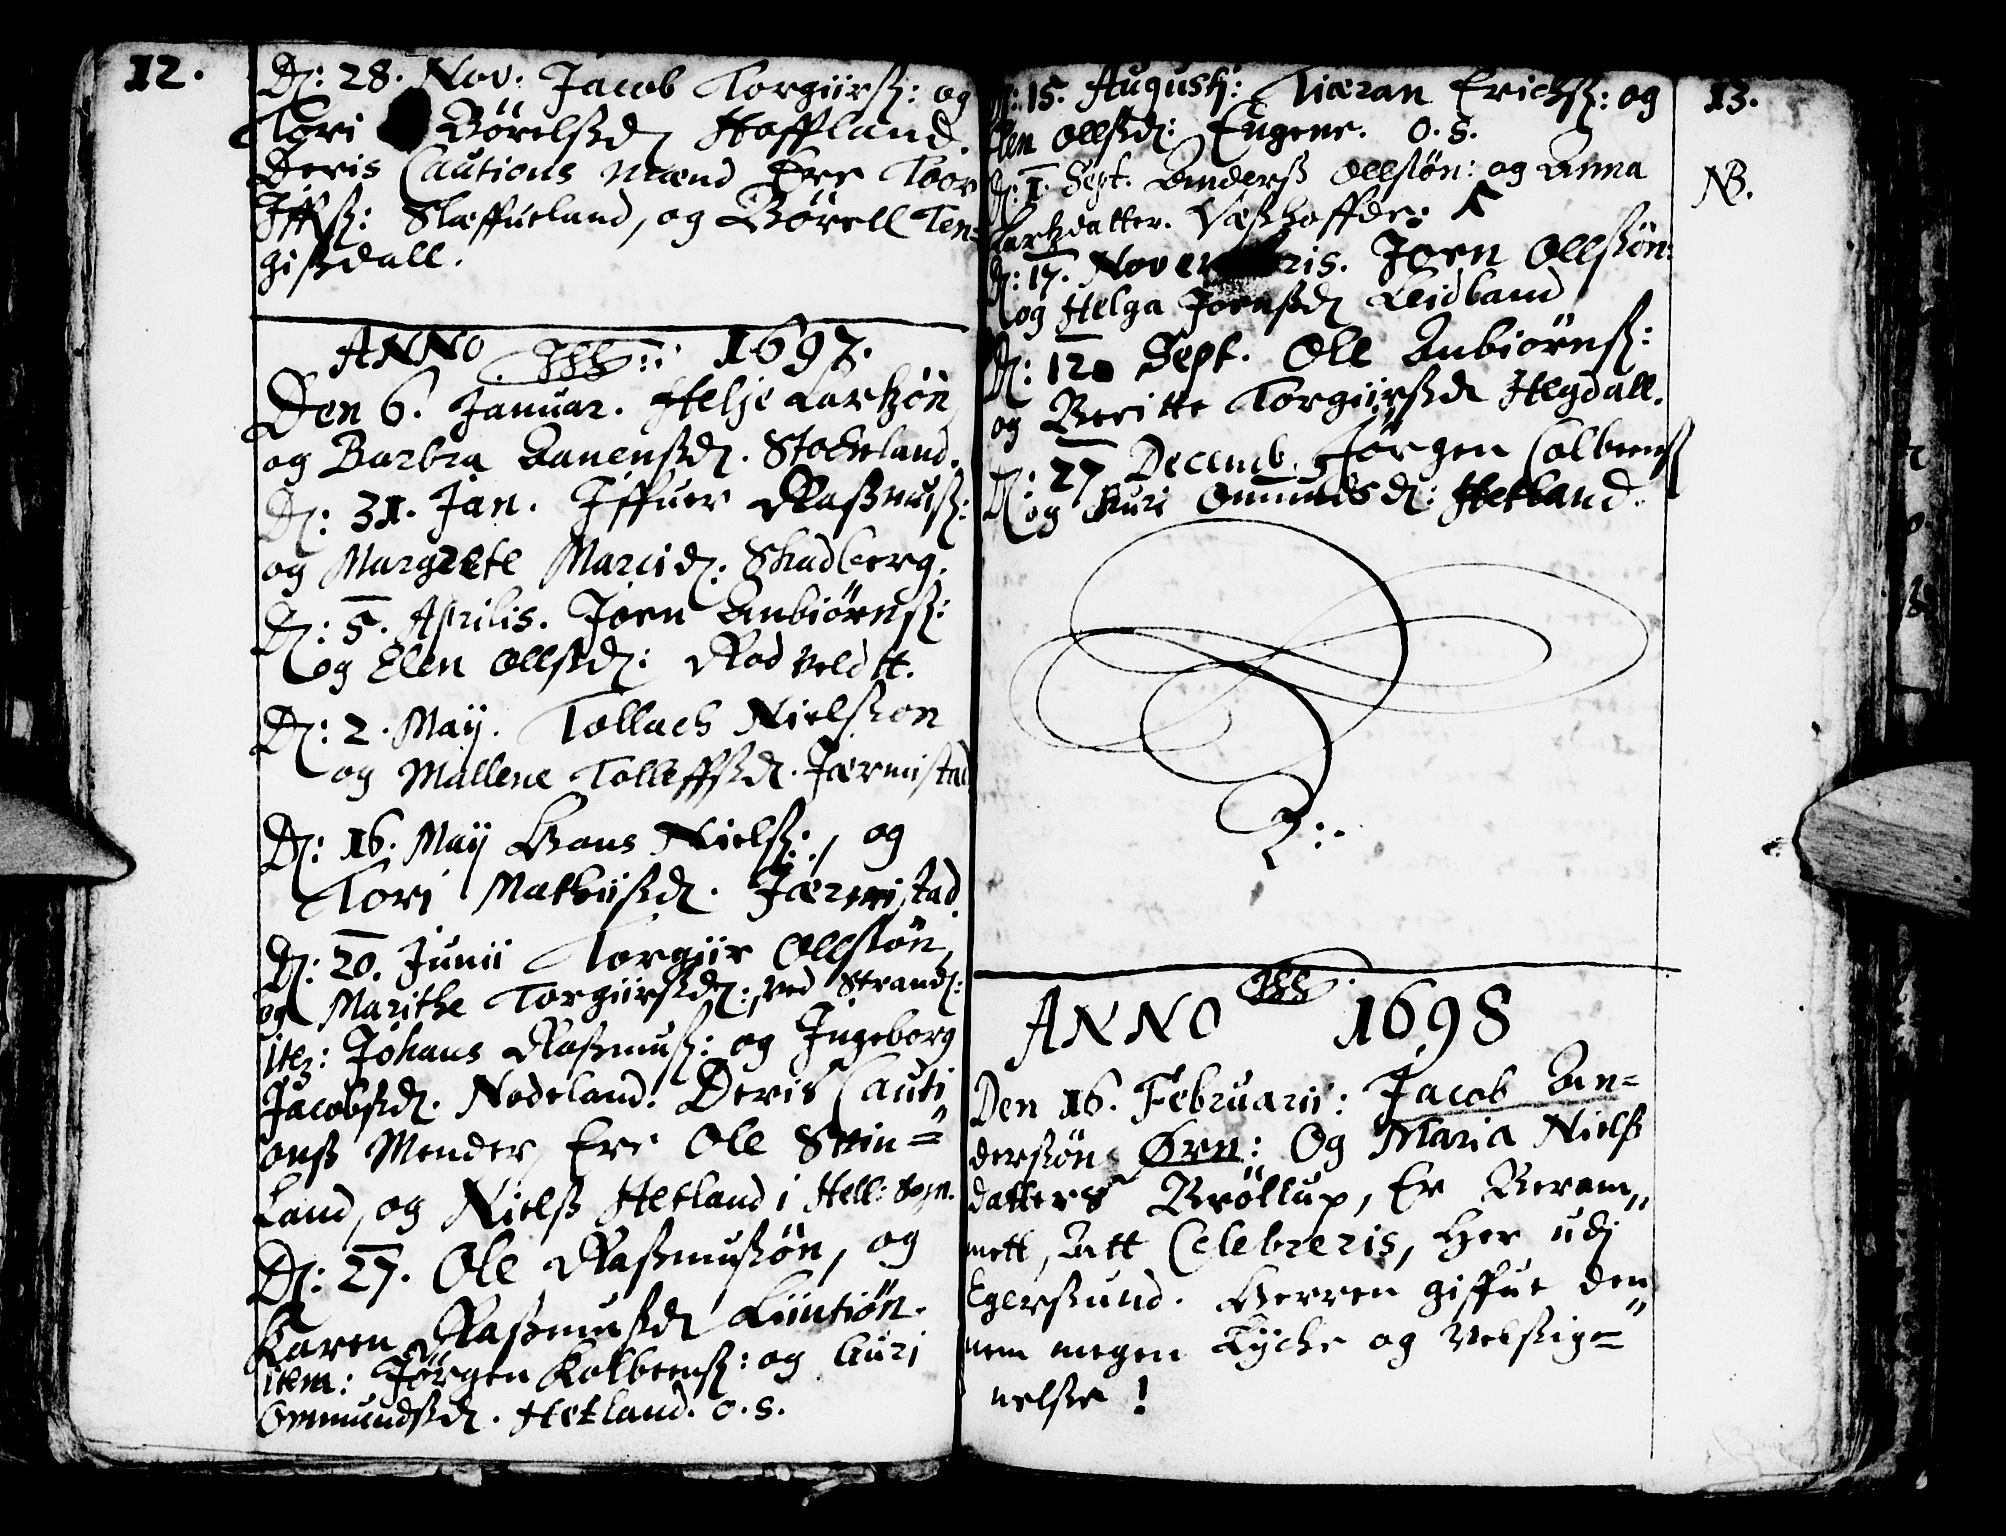 12.
D: 28. Nov. Jacob Torgiirß: og
Tori Børelßd Hoffland.
Deris Cautions Mænd Ere Toor
Iffß: Slæffueland, og Børell Ten=
gißdall.
ANNO 1697.
Den 6. Januar. Helje Lartzøn
og Barbra Aanenßd. Stocheland.
D: 31. Jan. Iffuer Raßmuß:
og Margrete Marcid. Skadberg.
D: 5. Aprilis. Joen Anbiørnß:
og Elen Ollßd: Rodveldtt.
D: 2. Maÿ. Tollach Nielßøn
og Mallene Tolleffßd. Jærmistad
D: 16. Maÿ Hans Nielß:, og
Tori Mathiißd. Jærmistad.
D: 20. Junii Torgiir Ollßøn,
og Marithe Torgiirßd: ved Strand:
item: Johans Raßmuß: og Ingeborg
Jacobßd. Nodeland. Deris Cauti
onß Mender, Ere Ole Skin=
Land, og Nielß Hetland i Hell: Sogn.
D: 27. Ole Raßmußøn, og
Karen Raßmußd Liintiøn.
item: Jørgen Kolbeenß: og Guri
Ommundßd. Hetland. o. s.
D: 15. Augustj: Tiæran Erichß: og
Elen Ollßd: Eugene. o. s.
13.
D: 1. Sept. Anderß Ollßøn: og Anna
NB.
Lartzdatter. Væßhoffde:
D: 17. Novembris. Joen Ollßøn:
og Helga Joenßd Leidland
D: 12 Sept. Ole Anbiørnß:
og Beritte Torgiirßd Hegdall.
D: 27 Decemb. Jørgen Colbeenß
og Guri Omundsd: Hetland.
ANNO 1698
Den 16. Februarii: Jacob An=
derßøn Ørn: Og Maria Nielß
datters Brøllup, Er Beram„
mett, Att Celebreris, her udj
Egerßund. Herren giffue den„
nem megen Lÿche og Velßig=
nelße!